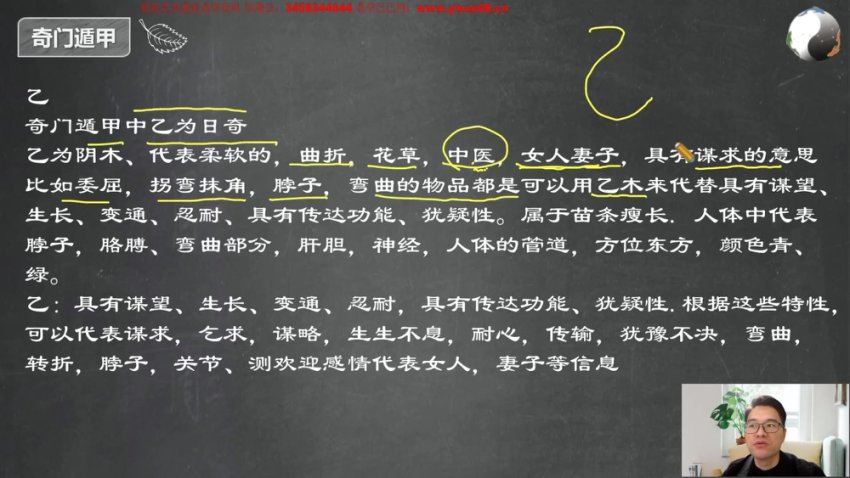 3458344044
奇门遁甲
乙
乙
奇门遁甲中乙为日奇
乙为阴木、代表柔软的，曲折，花草，中医，女人妻子，具有谋求的意思
比如委屈，拐弯抹角，脖子，弯曲的物品都是可以用乙木来代替具有谋望、
生长、变通、忍耐、具有传达功能、犹疑性。属于苗条瘦长．人体中代表
脖子，胳膊、弯曲部分，肝胆，神经，人体的管道，方位东方，颜色青、
绿。
乙：具有谋望、生长、变通、忍耐，具有传达功能、犹疑性.根据这些特性，
可以代表谋求，乞求，谋略，生生不息，耐心，传输，犹豫不决，弯曲，
转折，脖子，关节、测欢迎感情代表女人，妻子等信息